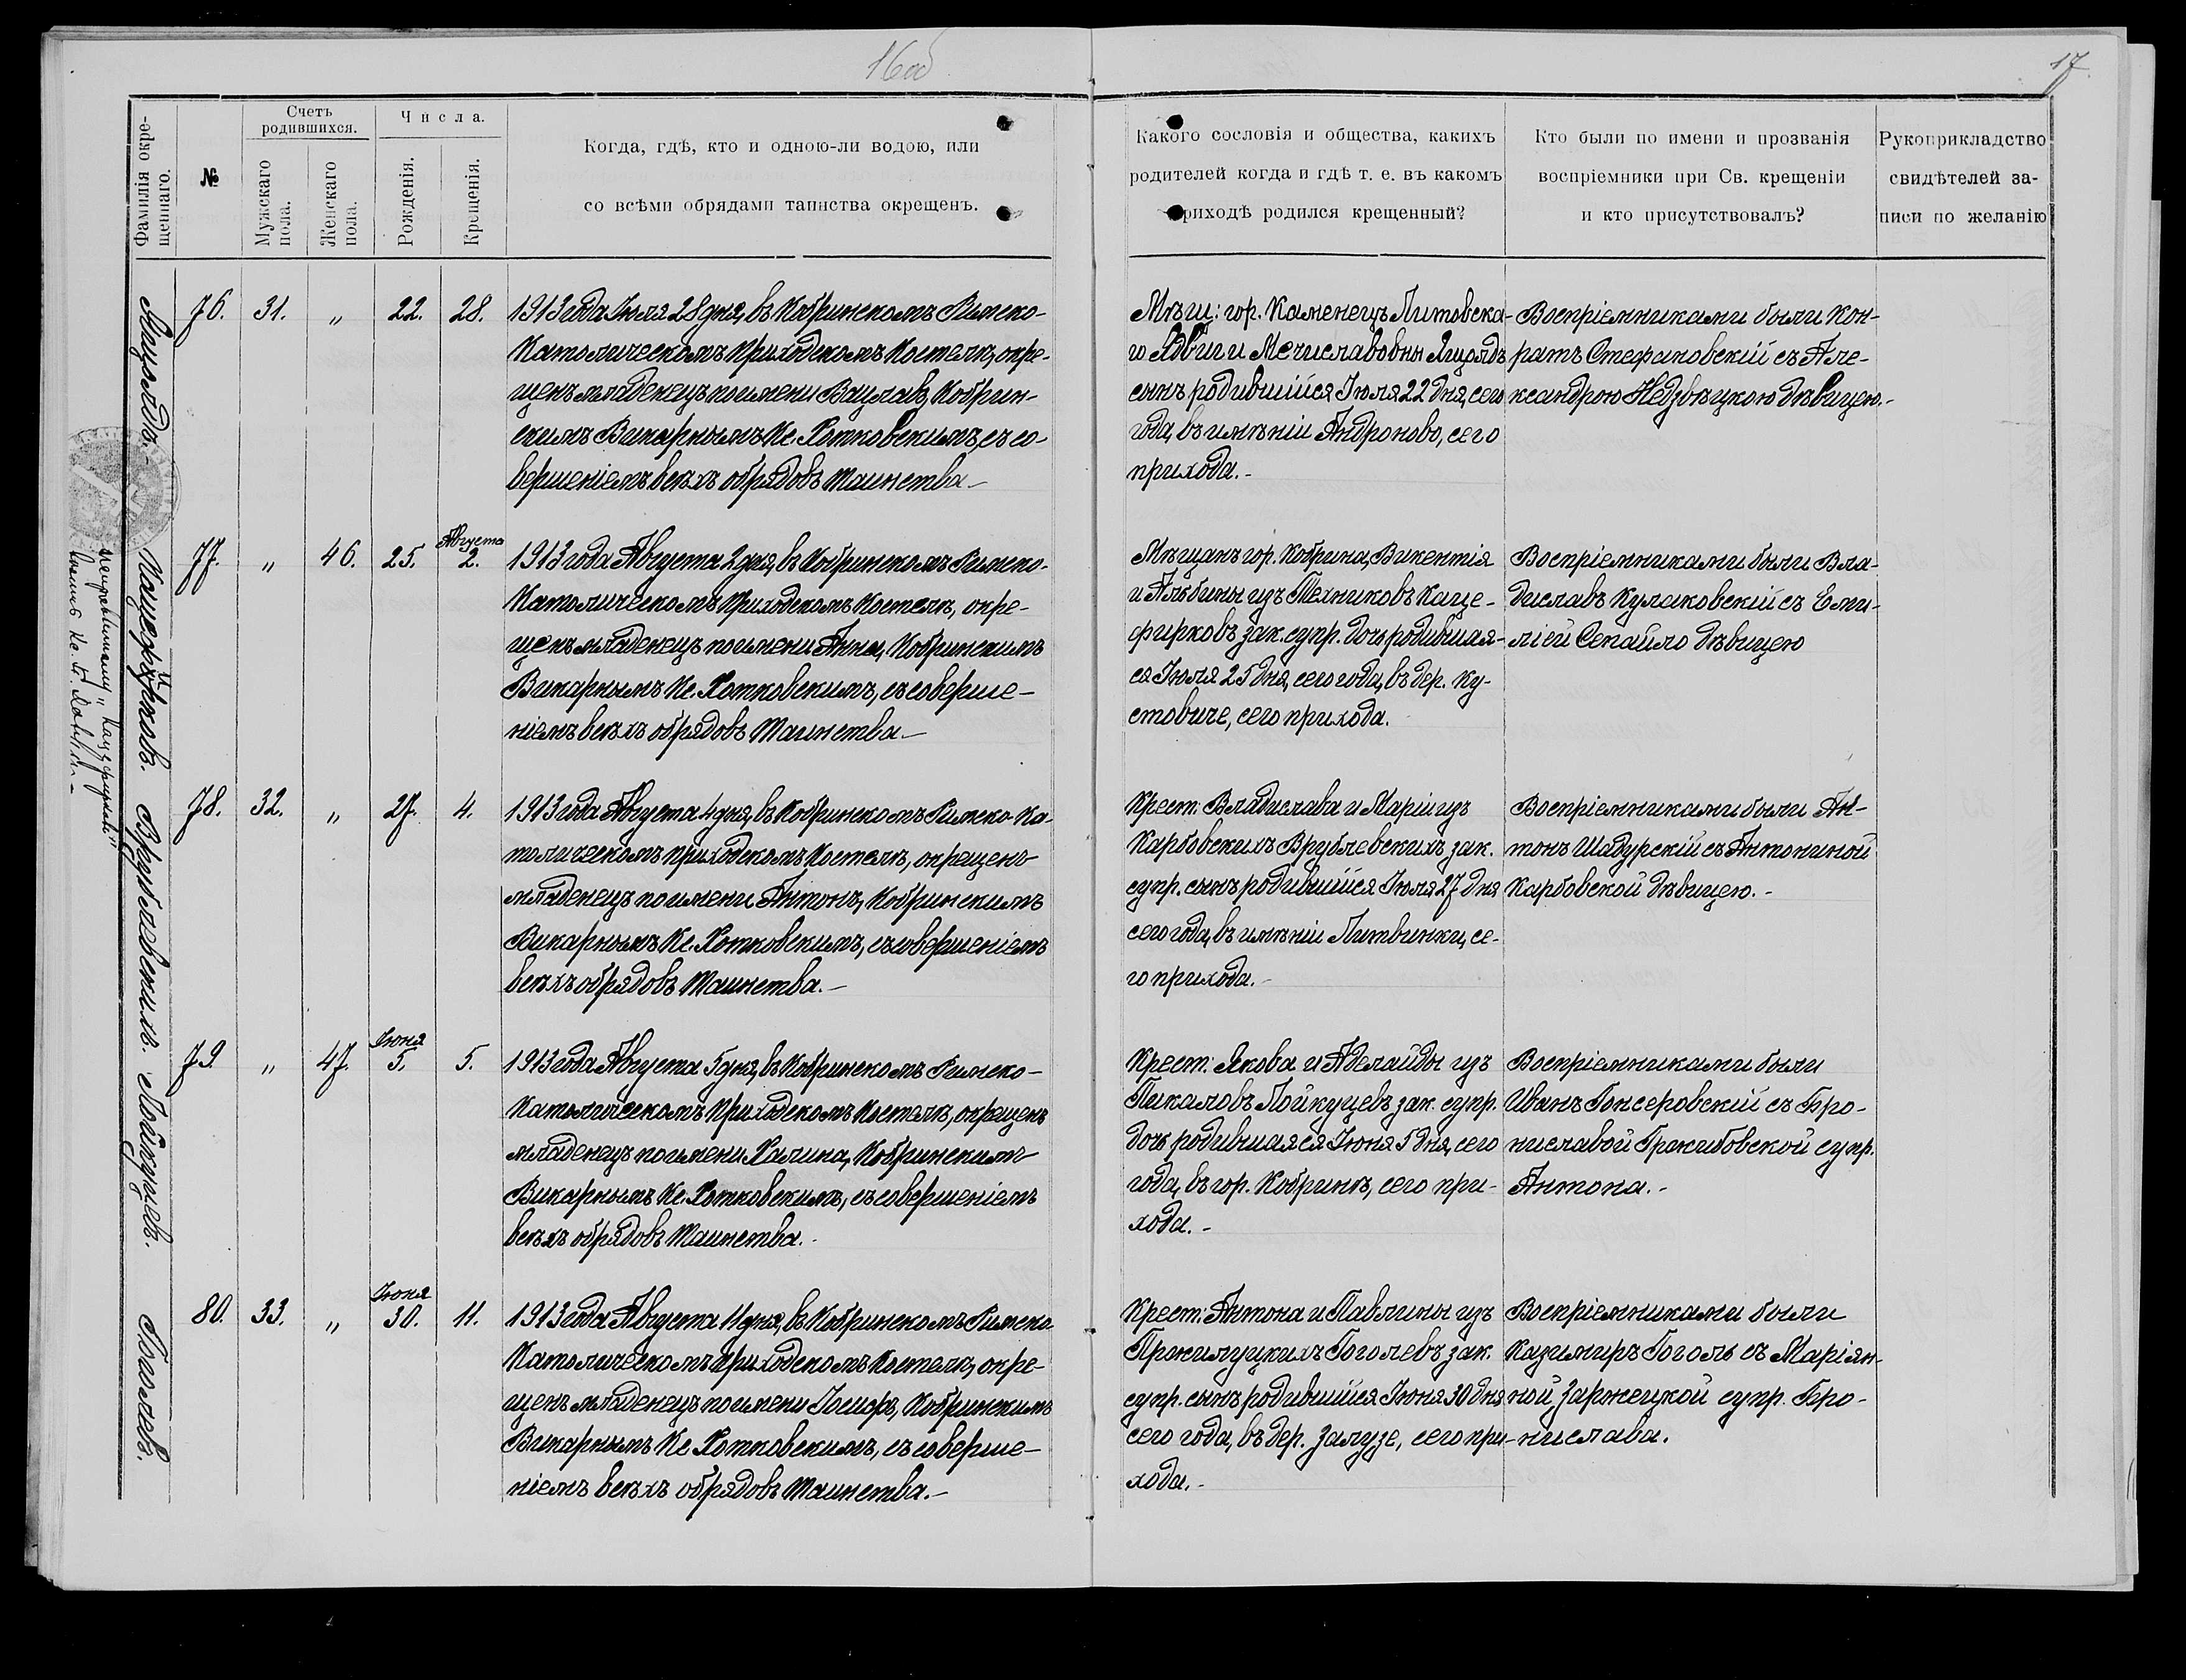 16об
17.
Фамилія окре-
щеннаго.
№
Счетъ
родившихся.
Мужскаго
пола.
Женскаго
пола.
Числа.
Рожденія.
Крещенія.
Когда, гдѣ, кто и одною-ли водою, или
со всѣми обрядами таинства окрещенъ.
Какого сословія и общества, какихъ
родителей когда и гдѣ т. е. въ какомъ
приходѣ родился крещенный?
Кто были по имени и прозванія
воспріемники при Св. крещеніи
и кто присутствовалъ?
Рукоприкладство
свидѣтелей за-
писи по желанію
76. 31. „ 22. 28.
1913 года Іюля 28 дня, въ Кобринскомъ Римско-
Католическомъ Приходскомъ Костелѣ, окре-
щенъ младенецъ по имени Вацлавъ, Кобрин-
скимъ Викарнымъ Кс. Хотковскимъ, съ со-
вершеніемъ всѣхъ обрядовъ Таинства.-
Мѣщ: гор. Каменецъ Литовска-
го Ядвиги Мечиславовны Ягцолдъ
сынъ родившійся Іюля 22 дня, сего
года, въ имѣніи Андроново, сего
прихода.-
Воспріемниками были Кон-
ратъ Стефановскій съ Але-
ксандрою Недзвѣцкою дѣвицею.-
Кацефирковъ.
исправленному „Кацефирковъ"
77. „ 46. 25. Августа 2.
1913 года Августа 2 дня, въ Кобринскомъ Римско-
Католическомъ Приходскомъ Костелѣ, окре-
щенъ младенецъ по имени Анна, Кобринскимъ
Викарнымъ Кс. Хотковскимъ, съ соверше-
ніемъ всѣхъ обрядовъ Таинства.-
Мѣщанъ гор. Кобрина, Викентія
и Альбины изъ Техниковъ Каце-
фирковъ зак. супр. дочь родившая-
ся Іюля 25 дня, сего года, въ дер. Ку-
стовиче, сего прихода.
Воспріемниками были Вла-
диславъ Кулаковскій съ Еми-
ліей Сепайло дѣвицею
Врублевскихъ.
78. 32. „ 27. 4.
1913 года Августа 4 дня, въ Кобринскомъ Римско-Ка-
толическомъ приходскомъ Костелѣ, окрещенъ
младенецъ по имени Антонъ, Кобринскимъ
Викарнымъ Кс. Хотковскимъ, съ совершеніемъ
всѣхъ обрядовъ Таинства.-
Крест: Владислава и Маріи изъ
Карбовскихъ Врублевскихъ зак.
супр. сынъ родившійся Іюля 27 дня
сего года, въ имѣніи Литвинки, се-
го прихода.-
Воспріемниками были Ан-
тонъ Шадурскій съ Антониной
Карбовской дѣвицею.-
Лойкуцевъ.
79. „ 47. Іюня 5. 5.
1913 года Августа 5 дня, въ Кобринскомъ Римско-
Католическомъ Приходскомъ Костелѣ, окрещенъ
младенецъ по имени Халина, Кобринскимъ
Викарнымъ Кс. Хотковскимъ, съ совершеніемъ
всѣхъ обрядовъ Таинства.-
Крест: Якова и Аделайды изъ
Пикаловъ Лойкуцевъ зак. супр.
дочь родившаяся Іюня 5 дня, сего
года, въ гор. Кобринѣ, сего при-
хода.-
Воспріемниками были
Иванъ Гонсеровскій съ Бро-
ниславой Гржибовской супр.
Антона.-
Гоголевъ.
80. 33. „ Іюня 30. 11.
1913 года Августа 11 дня, въ Кобринскомъ Римско-
Католическомъ Приходскомъ Костелѣ, окре-
щенъ младенецъ по имени Іосифъ, Кобринскимъ
Викарнымъ Кс. Хотковскимъ, съ соверше-
ніемъ всѣхъ обрядовъ Таинства.-
Крест: Антона и Павлины изъ
Пржилуцкихъ Гоголевъ зак.
супр. сынъ родившійся Іюня 30 дня
сего года, въ дер. Залузе, сего при-
хода.-
Воспріемниками были
Казимиръ Гоголь съ Маріян-
ной Заржецкой супр. Бро-
нислава.